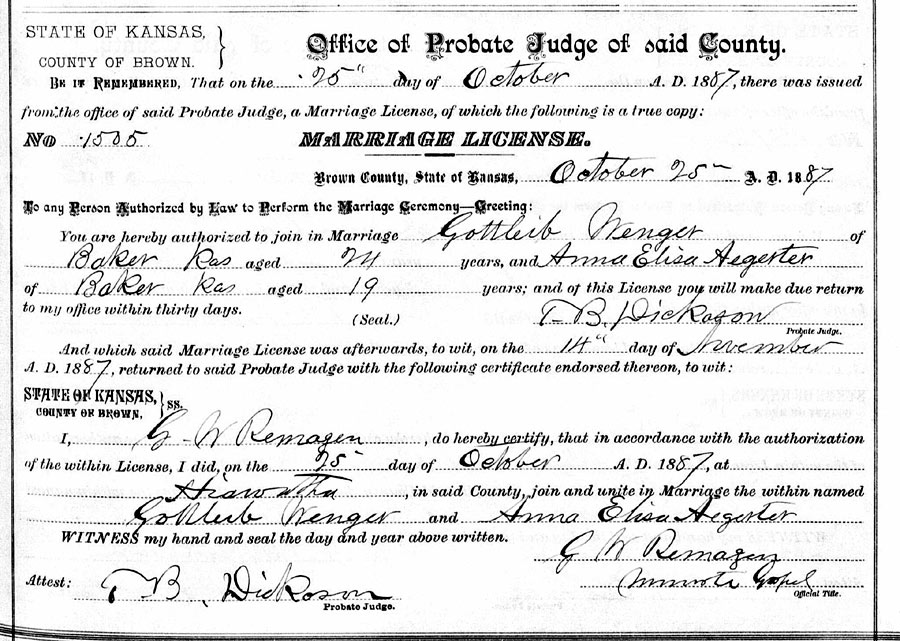 STATE OF KANSAS,
COUNTY OF BROWN.
Office of Probate Judge of said County.
BE IT REMEMBERED, That on the 25" day of October A. D. 1887, there was issued
from the office of said Probate Judge, a Marriage License, of which the following is a true copy:
No 1505 MARRIAGE LICENSE.
Brown County, State of Kansas, October 25 A. D. 1887
To any Person Authorized by Law to Perform the Marriage Ceremony—Greeting:
You are hereby authorized to join in Marriage Gottleib Wenger of
Baker Kas aged 24 years, and Anna Elisa Aegerter
of Baker Kas aged 19 years; and of this License you will make due return
to my office within thirty days. (Seal.) T. B. Dickason
Probate Judge.
And which said Marriage License was afterwards, to wit, on the 14" day of November
A. D. 1887, returned to said Probate Judge with the following certificate endorsed thereon, to wit:
STATE OF KANSAS,
COUNTY OF BROWN, } ss.
I, G W Remagen, do hereby certify, that in accordance with the authorization
of the within License, I did, on the 25 day of October A. D. 1887, at
Hiawatha, in said County, join and unite in Marriage the within named
Gottleib Wenger and Anna Elisa Aegerter
WITNESS my hand and seal the day and year above written.
G W Remagen
Attest: T B. Dickason Gospel
Probate Judge. Official Title.